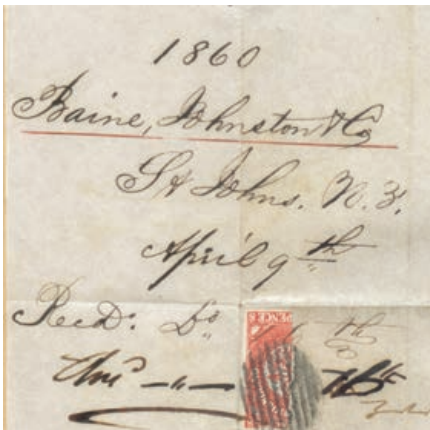 1860
Baine, Johnston & Co
St Johns. N. F.
April 9th
Recd: Do
PENCE
Ansd — " — 16th